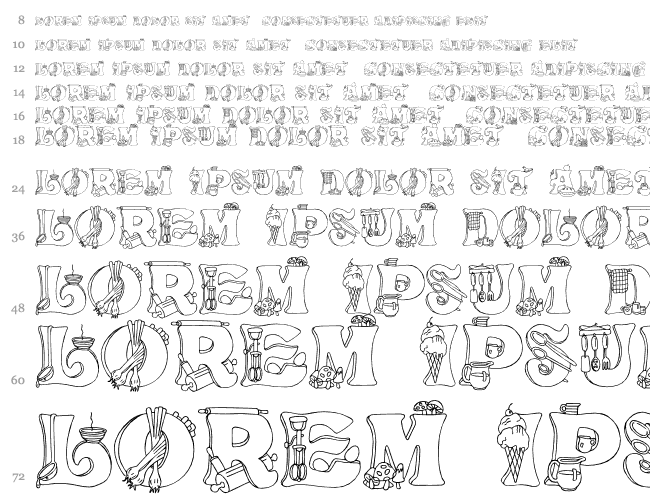 8 LOREM IPSUM DOLOR SIT AMET CONSECTETUER ADIPISCING ELIT
10 LOREM IPSUM DOLOR SIT AMET CONSECTETUER ADIPISCING ELIT
12 LOREM IPSUM DOLOR SIT AMET CONSECTETUER ADIPISCING
14 LOREM IPSUM DOLOR SIT AMET CONSECTETUER
16 LOREM IPSUM DOLOR SIT AMET
18 LOREM IPSUM DOLOR SIT AMET
24 LOREM IPSUM DOLOR SIT AMET
36 LOREM IPSUM DOLOR
48 LOREM IPSUM D
60 LOREM IPSU
72 LOREM IPS